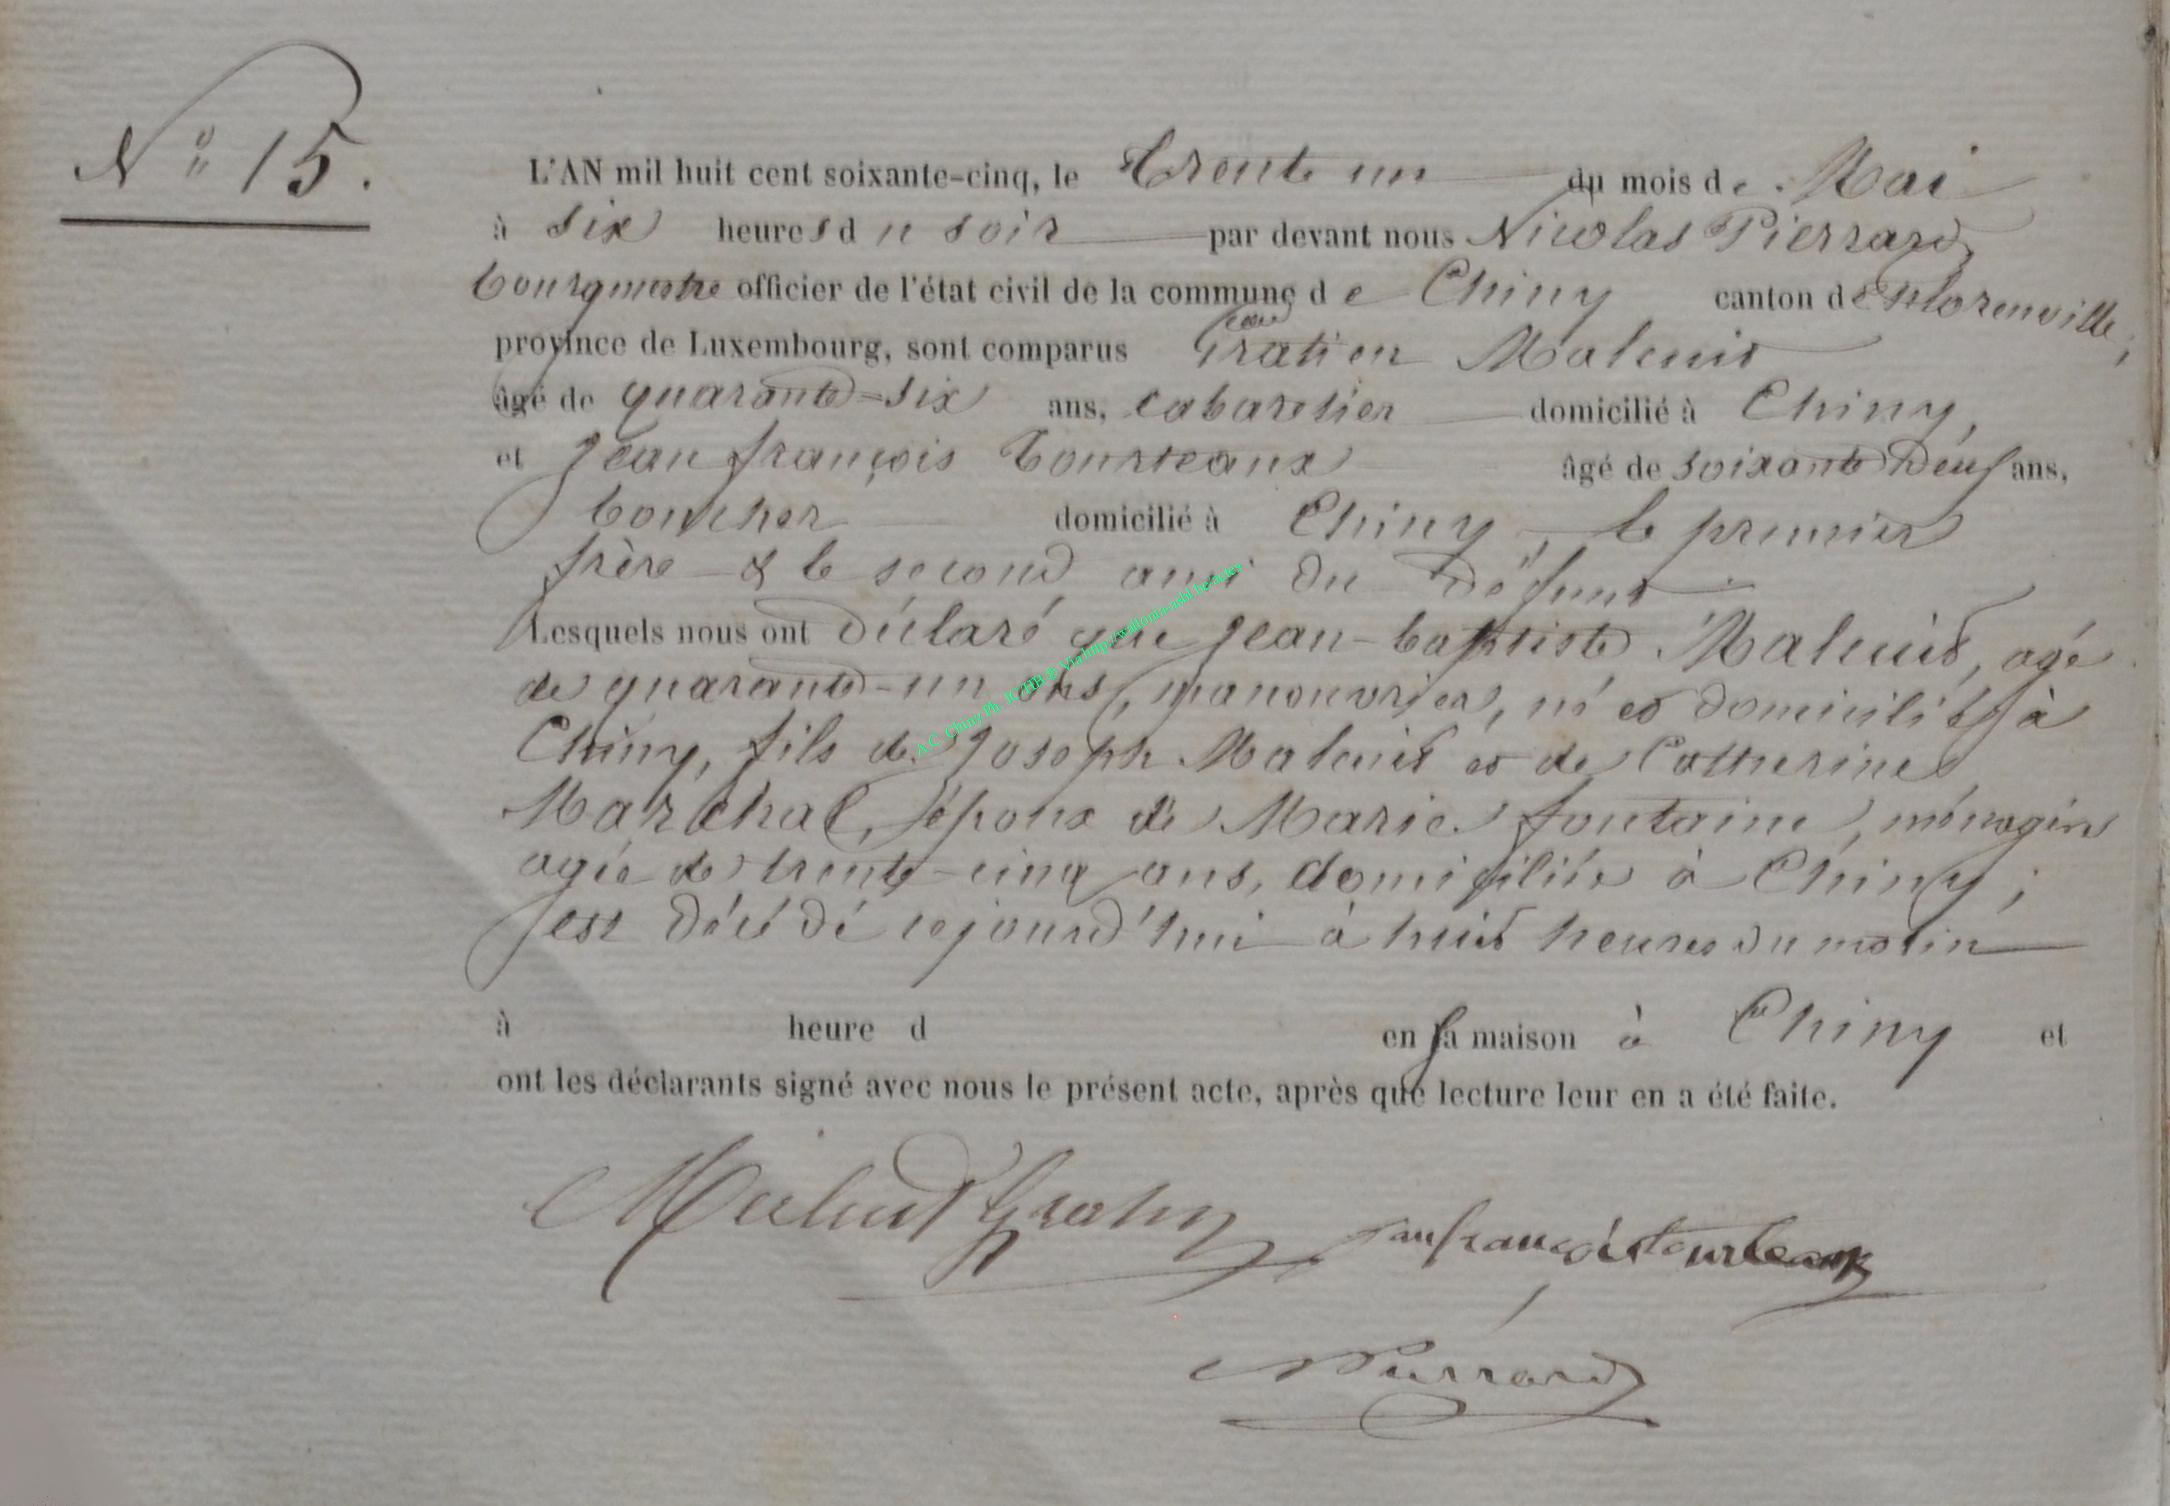 N° 15.
L'AN mil huit cent soixante-cinq, le Trente un du mois de Mai
à six heures du soir par devant nous Nicolas Pierrard
bourgmestre officier de l'état civil de la commune de Chiny canton de Florenville,
province de Luxembourg, sont comparus Gratien Maluid
âgé de quarante-six ans, cabaretier domicilié à Chiny,
et Jean françois Tourteaux âgé de soixante deux ans,
boucher domicilié à Chiny, le premier
frère & le second ami du défunt
Lesquels nous ont déclaré que Jean-baptiste Maluid, agé
de quarante-un ans, manouvrier, né et domicilié à
Chiny, fils de Joseph Maluid et de Catherine
Maréchal, époux de Marie fontaine, ménagère
agée de trente-cinq ans, domiciliée à Chiny;
est décédé cejourd'hui à huit heures du matin
à heure d en sa maison à Chiny et
ont les déclarants signé avec nous le présent acte, après que lecture leur en a été faite.
Malud Gratin Jean françois tourteaux
NPierrard
A.C. Chiny Ph. JC HB © Via http://wallonia-asbl.be/actes